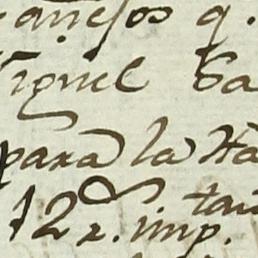 añejos q.
Miguel Sa
para la Ha
12 r. imp. tan